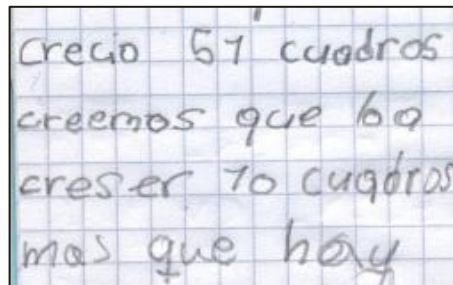 crecio 51 cuadros
creemos que ba
creser 10 cuadros
mas que hay